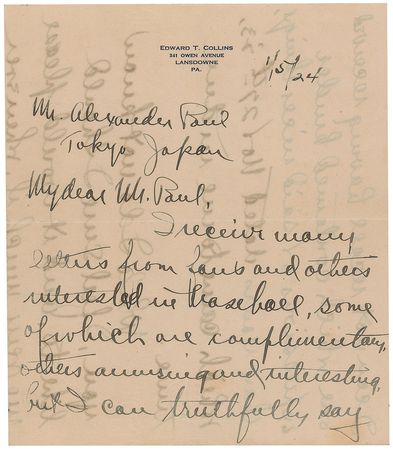 EDWARD T. COLLINS
341 OWEN AVENUE
LANSDOWNE
PA.
1/5/24
Mr. Alexander Paul
Tokyo Japan
My dear Mr. Paul,
I receive many
letters from fans and others
interested in baseball, some
of which are complimentary,
others amusing and interesting,
but I can truthfully say